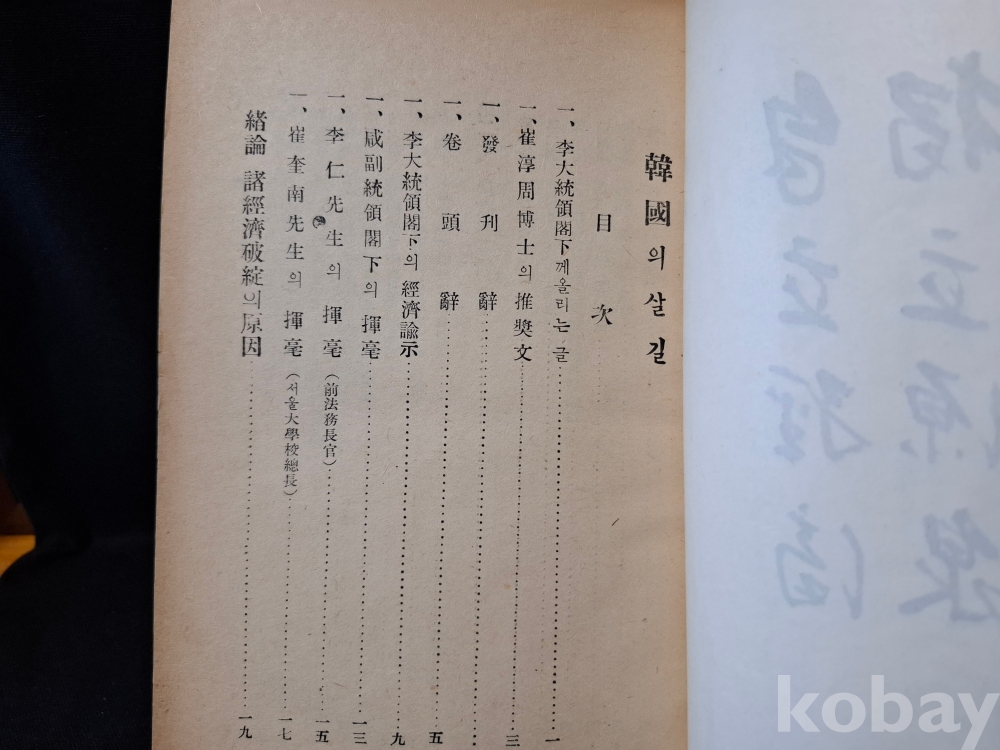 韓國의 살길
目次
一、李大統領閣下께올리는글 一
一、崔淳周博士의推奬文 三
一、發刊辭
一、卷頭辭 五
一、李大統領閣下의經濟諭示 九
一、咸副統領閣下의揮毫 一三
一、李仁先生의揮毫(前法務長官) 一五
一、崔奎南先生의揮毫(서울大學校總長) 一七
緖論 諸經濟破綻의原因 一九
kobay